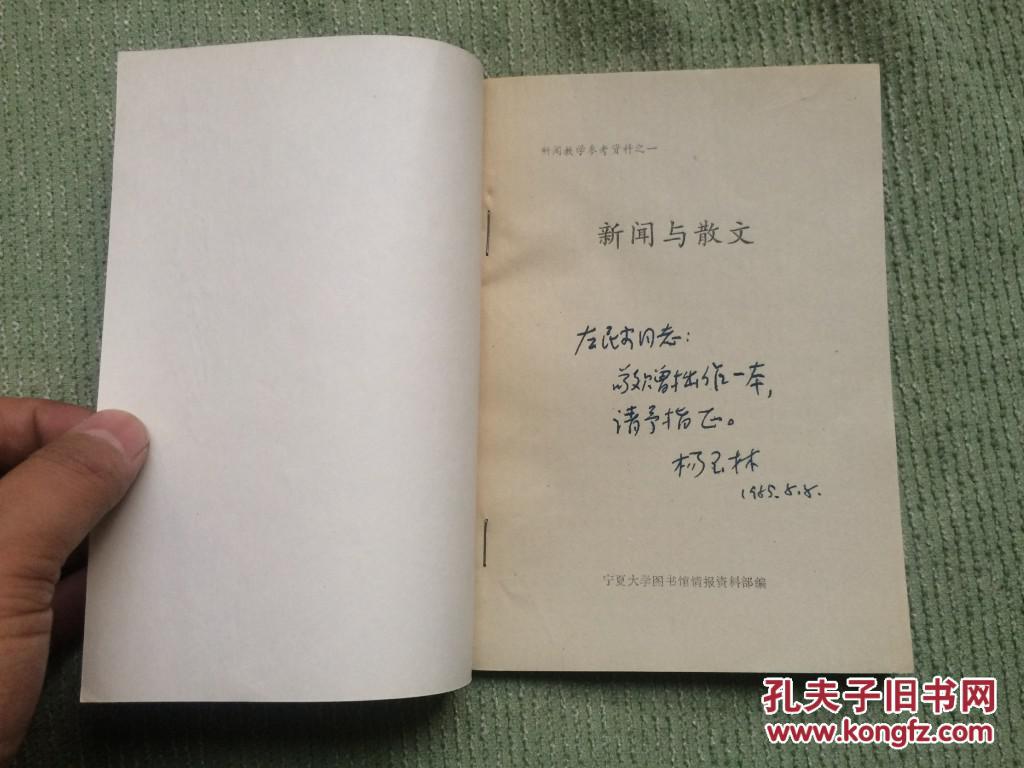 新闻教学参考资料之一
新闻与散文
左民安同志:
敬赠拙作一本,
请予指正。
杨玉林
1985.5.5.
宁夏大学图书馆情报资料部编
孔夫子旧书网
www.kongfz.com